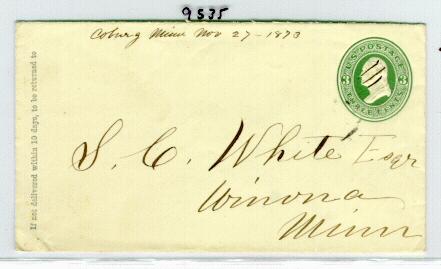 9535
Coburg Minn Nov 27 - 1873
U.S. POSTAGE
THREE CENTS
If not delivered within 10 days, to be returned to
S. C. White Esqr
Winona
Minn